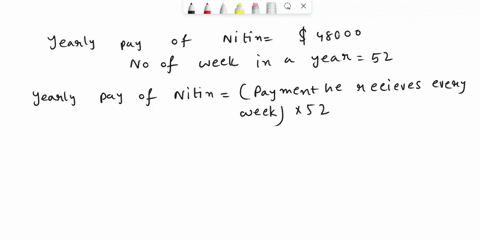 Yearly pay of Nitin = $ 48000
No of week in a year = 52
Yearly pay of Nitin = (Payment he recieves every
week) × 52